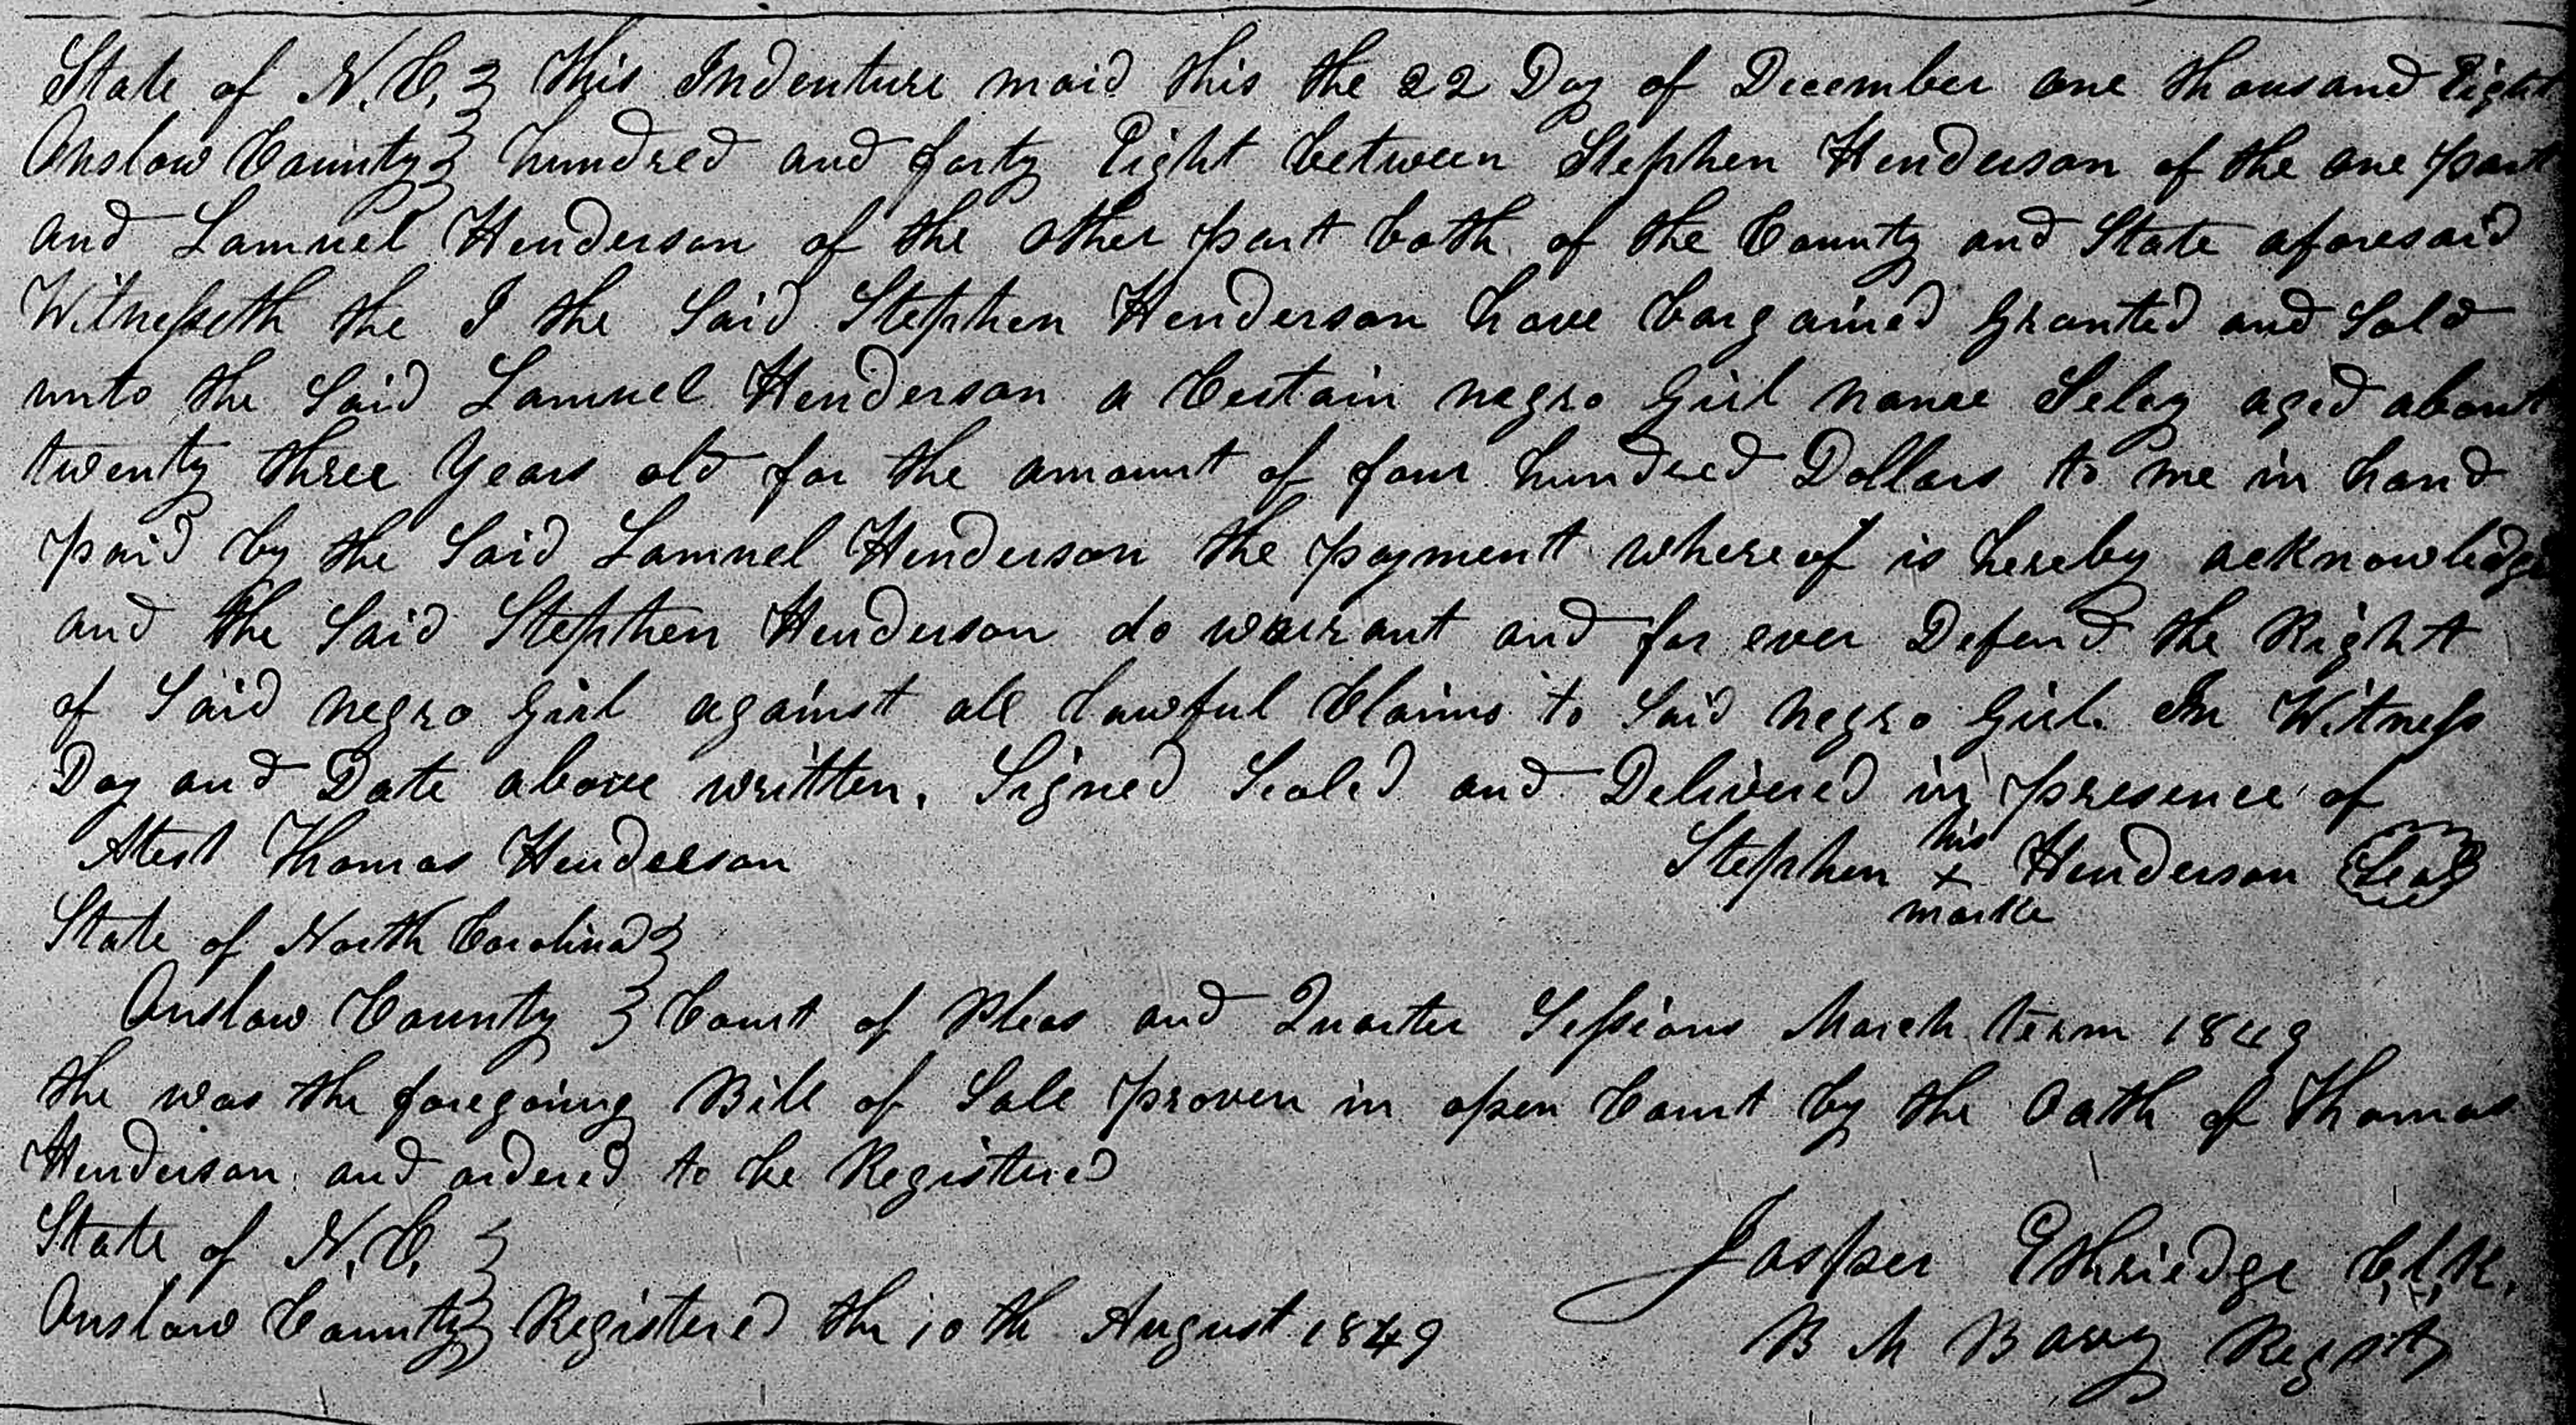 State of N.C. } This Indenture maid this the 22 Day of December one thousand Eight
Onslow County } hundred and forty Eight between Stephen Henderson of the one part
and Lamuel Henderson of the other part both of the County and State aforesaid
Witnesseth the I the Said Stephen Henderson have bargained Granted and Sold
unto the Said Lamuel Henderson a Certain negro Girl name Seley aged about
twenty three Years old for the amount of four hundred Dollars to me in hand
paid by the Said Lamuel Henderson the payment whereof is hereby acknowledge
and the Said Stephen Henderson do warrant and for ever Defend the Right
of Said negro Girl against all lawful Claims to Said negro Girl. In Witness
Day and Date above written. Signed Sealed and Delivered in presence of
Atest Thomas Henderson Stephen his x marke Henderson Seal
State of North Carolina }
Onslow County } Court of Pleas and Quarter Sessions March term 1849
the was the foregoing Bill of Sale proven in open Court by the Oath of Thomas
Henderson and ordered to be Registered
State of N.C. } Jasper Ethriedge C,l,k.
Onslow County } Registered the 10th August 1849 B M Barry Regstr